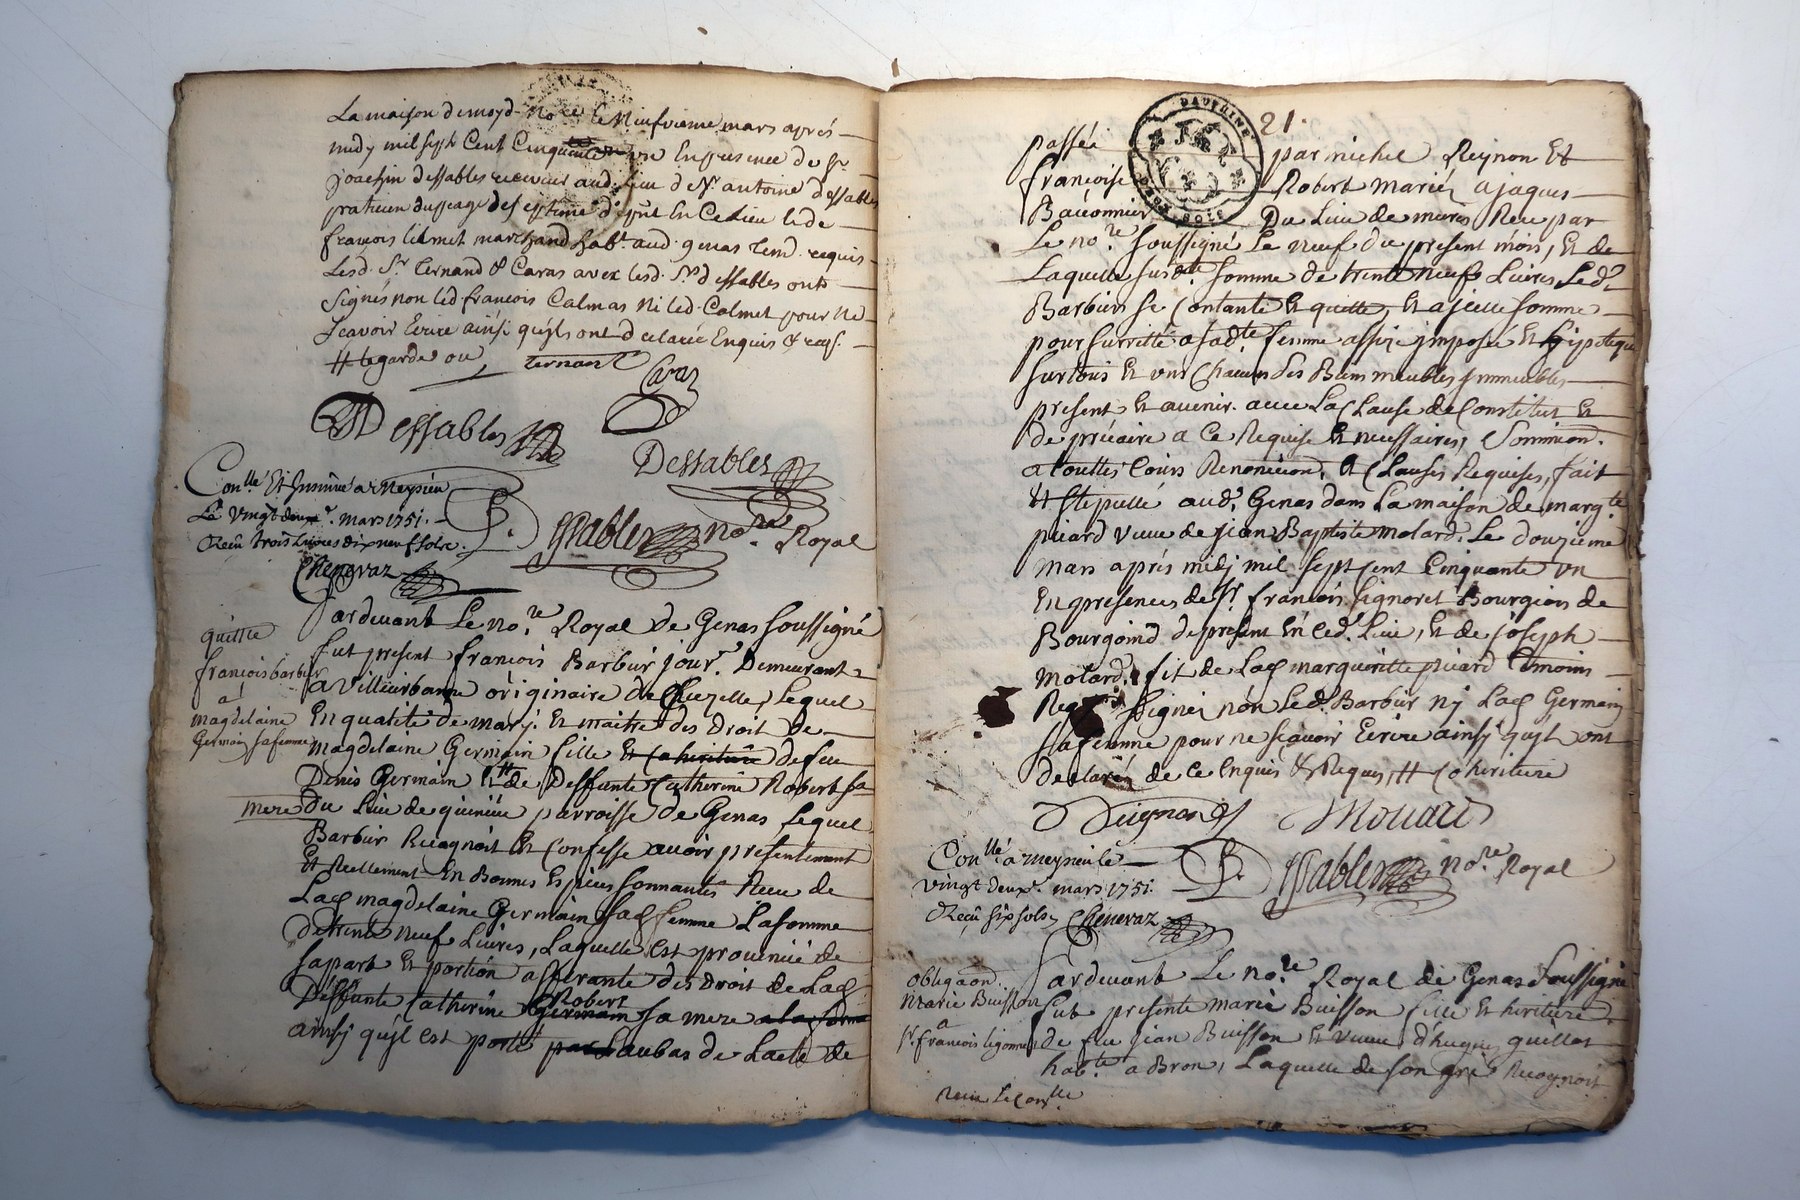 La maison de moyd. no.re le Neufvieme mars aprés
midy mil sept Cent Cinquante un En presence de Sr
joachin dessables receveur aud. lieu de Sr. antoine dessables
praticien
francois Calmet marchand hab.t aud. genas requis
Lesd. Sr. Ternand & Caras avec lesd. Srs. dessables ont
Signés non led francois Calmas Ni led. Calmet pour Ne
Scavoir Ecrire ainsi qu'ils ont declaré Enquis & req.
# legarde ou ternant
Caraz
Dessables
Dessables
Con.llé Et Insinué a Meysieu
Le vingt deux.e mars 1751.
Reçû trois Livres dix neuf sols.
Chenevaz
Dessables no.re Royal
quittce
francois barbier
a
magdelaine
Germain sa femme
Pardevant Le no.re Royal de Genas soussigné
fut present francois Barbier jour.r Demeurant
a Villeurbanne originaire de Lequel
En qualité de mary. Et maitre des Droit de
magdelaine Germain fille Et Coheritiere de feu
Denis Germain Et # de Deffunte Catherine Robert sa
mere du Lieu de parroisse de Genas Lequel
Barbier Recognoit Et Confesse avoir presentement
Et Reellement En Bonnes Espices sonnantes Receu de
Lad magdelaine Germain sad femme La somme
de trente neuf Livres, Laquelle Est provenüe de
sa part Et portion afferante des Droit de Lad
Deffunte Catherine Germain Robert sa mere a la forme
ainsy qu'il Est porté par Laubas de Lacte de
21.
DAUPHINE
passée par michel Reynon Et
francoise Robert mariés a jaques
Baconnier Du Lieu de mures Receu par
Le no.re soussigné Le neuf du present mois, Et de
Laquelle susd.te somme de trente neuf Livres Led.
Barbier se Contante Et quitte, Et ajcelle somme
pour surretté a sad.te femme assize jmposée Et hipoteque
sur tous Et uns Chacuns des Biens meubles jmmeubles
present Et avenir. avec La Clause de Constitut Et
de précaire a Ce Requise Et necessaires, Soumission.
a touttes Cours Renonciaon, Et Clauses Requises, fait
Et Stipullé aud. Genas dans La maison de marg.te
picard veuve de jean Baptiste molard. Le douzieme
mars aprés midj mil sept Cent Cinquante un
En presences de Sr. francois signoret Bourgeois de
Bourgoind de present En Ced. Lieu, Et de joseph
molard. fit de Lad marguerite picard temoins
Requis signés nón Led. Barbier nj Lad Germain
sa femme pour ne scavoir Ecrire ainsj quils ont
declarés de ce Enquis & Requis, # Coheritiere
Molard
Con.llé a Meysieu le
vingt deux.e mars 1751.
Reçû six sols. Chenevaz
Dessables no.re Royal
obligaon.
Marie Buisson
a
sr. francois
Pardevant Le no.re Royal de Genas Soussigné
fut presente marie Buisson fille Et heritiere
de feu jean Buisson Et veuve d'hugues guillot
hab.te a Bron, Laquelle de son gré Recognoit